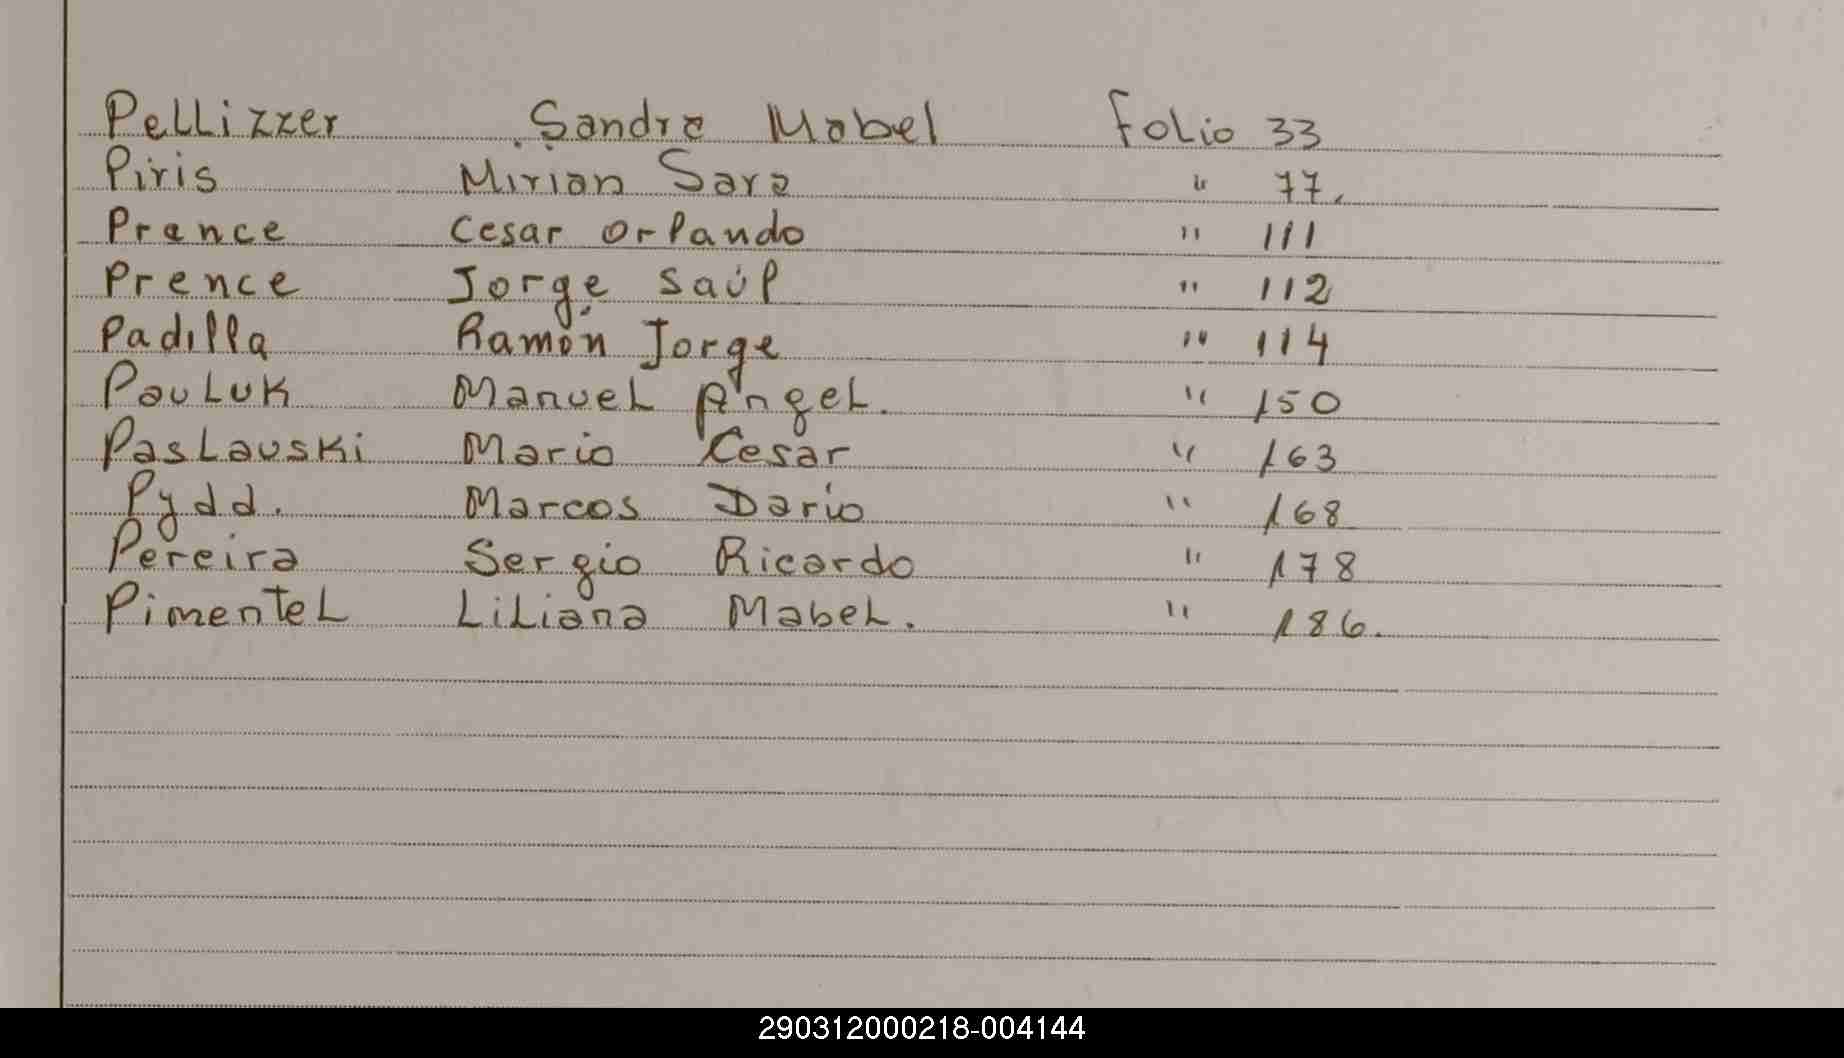 Pellizzer Sandra Mabel Folio 33
Piris Mirian Sara " 77.
Prance Cesar Orlando " 111
Prence Jorge Saúl " 112
Padilla Ramón Jorge " 114
Pauluk Manuel Angel. " 150
Paslauski Mario Cesar " 163
Pydd. Marcos Dario " 168
Pereira Sergio Ricardo " 178
Pimentel Liliana Mabel. " 186.
290312000218-004144